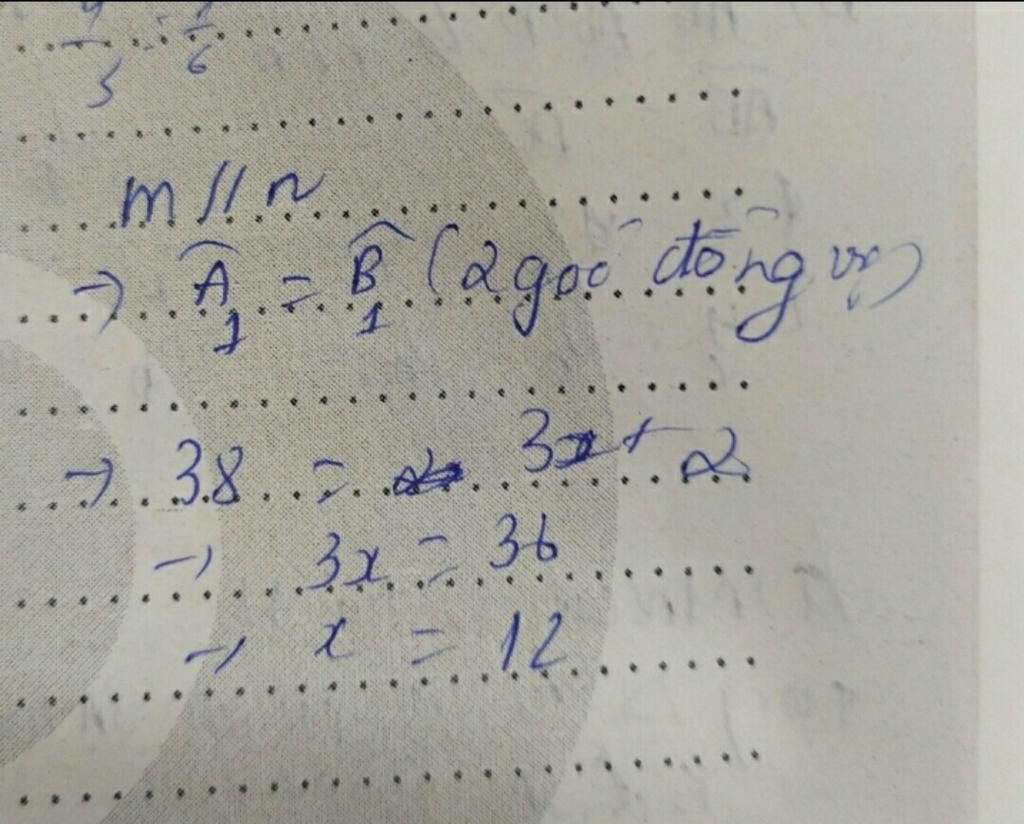 m // n
→ Â₁ = B̂₁ (2 góc đồng vị)
→ 38 = 3x + 2
→ 3x = 36
→ x = 12